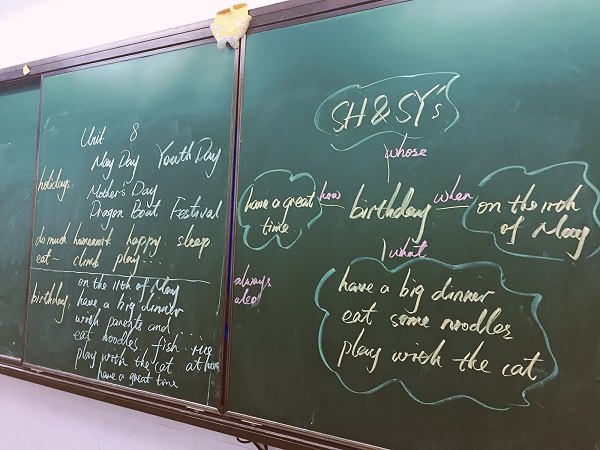 Unit 8
May Day Youth Day
holidays:
Mother's Day
Dragon Boat Festival
do much homework happy sleep
eat climb play...
on the 11th of May
birthday: have a big dinner
with parents and
eat noodles fish rice
play with the cat at home
have a great time
SH&SY's
whose
have a great time
how
birthday
when
on the 11th of May
what
always
also
have a big dinner
eat some noodles
play with the cat